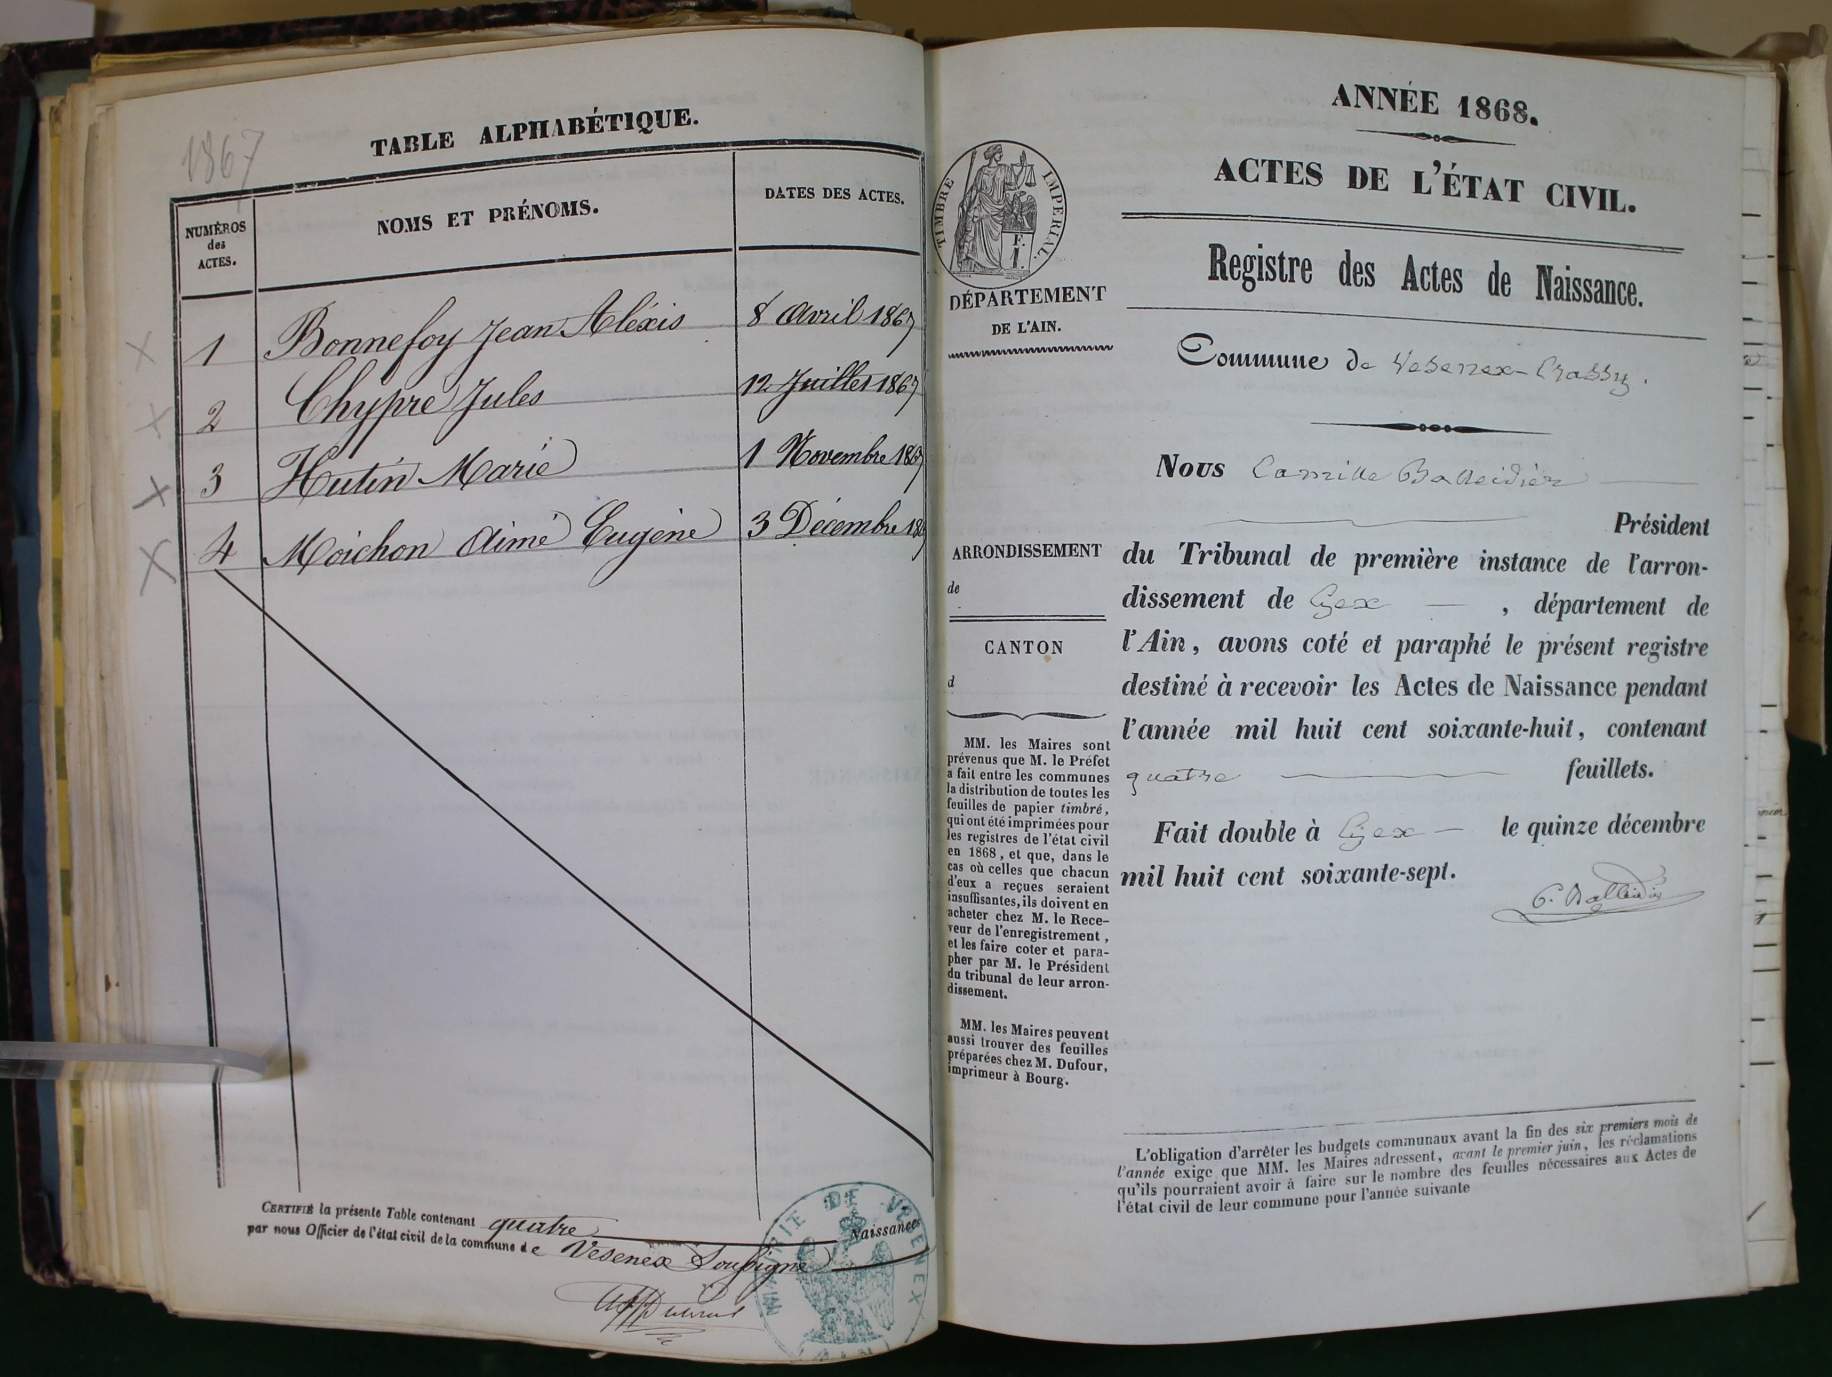 1867
TABLE ALPHABÉTIQUE.
NUMÉROS
des
ACTES.
NOMS ET PRÉNOMS.
DATES DES ACTES.
1 Bonnefoy Jean Aléxis 8 Avril 1867
2 Chypre Jules 12 Juillet 1867
3 Hutin Marie 1 Novembre 1867
4 Moichon Aimé Eugène 3 Décembre 1867
CERTIFIÉ la présente Table contenant quatre Naissances
par nous Officier de l'état civil de la commune de Vesenex
MAIRIE DE VESENEX
ANNÉE 1868.
ACTES DE L'ÉTAT CIVIL.
TIMBRE IMPERIAL.
F.
1.
DÉPARTEMENT
DE L'AIN.
Registre des Actes de Naissance.
Commune de Vesenex-Crassy.
Nous Camille Balleidier
Président
du Tribunal de première instance de l'arron-
dissement de Gex, département de
l'Ain, avons coté et paraphé le présent registre
destiné à recevoir les Actes de Naissance pendant
l'année mil huit cent soixante-huit, contenant
quatre feuillets.
Fait double à Gex le quinze décembre
mil huit cent soixante-sept.
ARRONDISSEMENT
de
CANTON
d
MM. les Maires sont
prévenus que M. le Préfet
a fait entre les communes
la distribution de toutes les
feuilles de papier timbré,
qui ont été imprimées pour
les registres de l'état civil
en 1868, et que, dans le
cas où celles que chacun
d'eux a reçues seraient
insuffisantes, ils doivent en
acheter chez M. le Rece-
veur de l'enregistrement,
et les faire coter et para-
pher par M. le Président
du tribunal de leur arron-
dissement.
MM. les Maires peuvent
aussi trouver des feuilles
préparées chez M. Dufour,
imprimeur à Bourg.
L'obligation d'arrêter les budgets communaux avant la fin des six premiers mois de
l'année exige que MM. les Maires adressent, avant le premier juin, les réclamations
qu'ils pourraient avoir à faire sur le nombre des feuilles nécessaires aux Actes de
l'état civil de leur commune pour l'année suivante